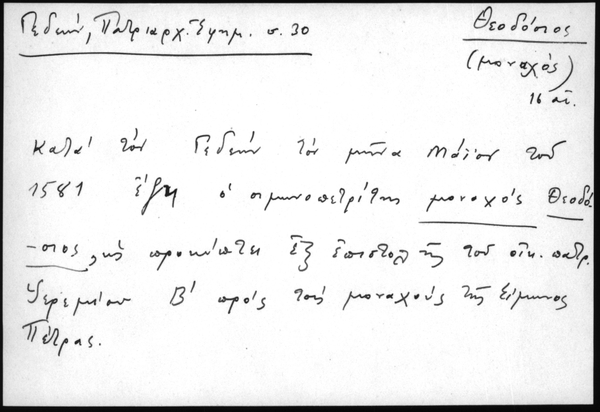 Γεδεών, Πατριαρχ. Εφημ. σ. 30
Θεοδόσιος
(μοναχός)
16 αἰ.
Κατά τόν Γεδεών τόν μῆνα Μάϊον τοῦ
1581 ἔζη ὁ σιμωνοπετρίτης μοναχός Θεοδό-
-σιος, ὡς προκύπτει ἐξ ἐπιστολῆς τοῦ οἰκ. πατρ.
Ἱερεμίου Β' πρός τούς μοναχούς τῆς Σίμωνος
Πέτρας.